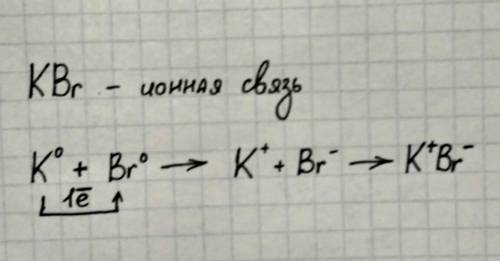 KBr - ионная связь
K⁰ + Br⁰ → K⁺ + Br⁻ → K⁺Br⁻
1ē